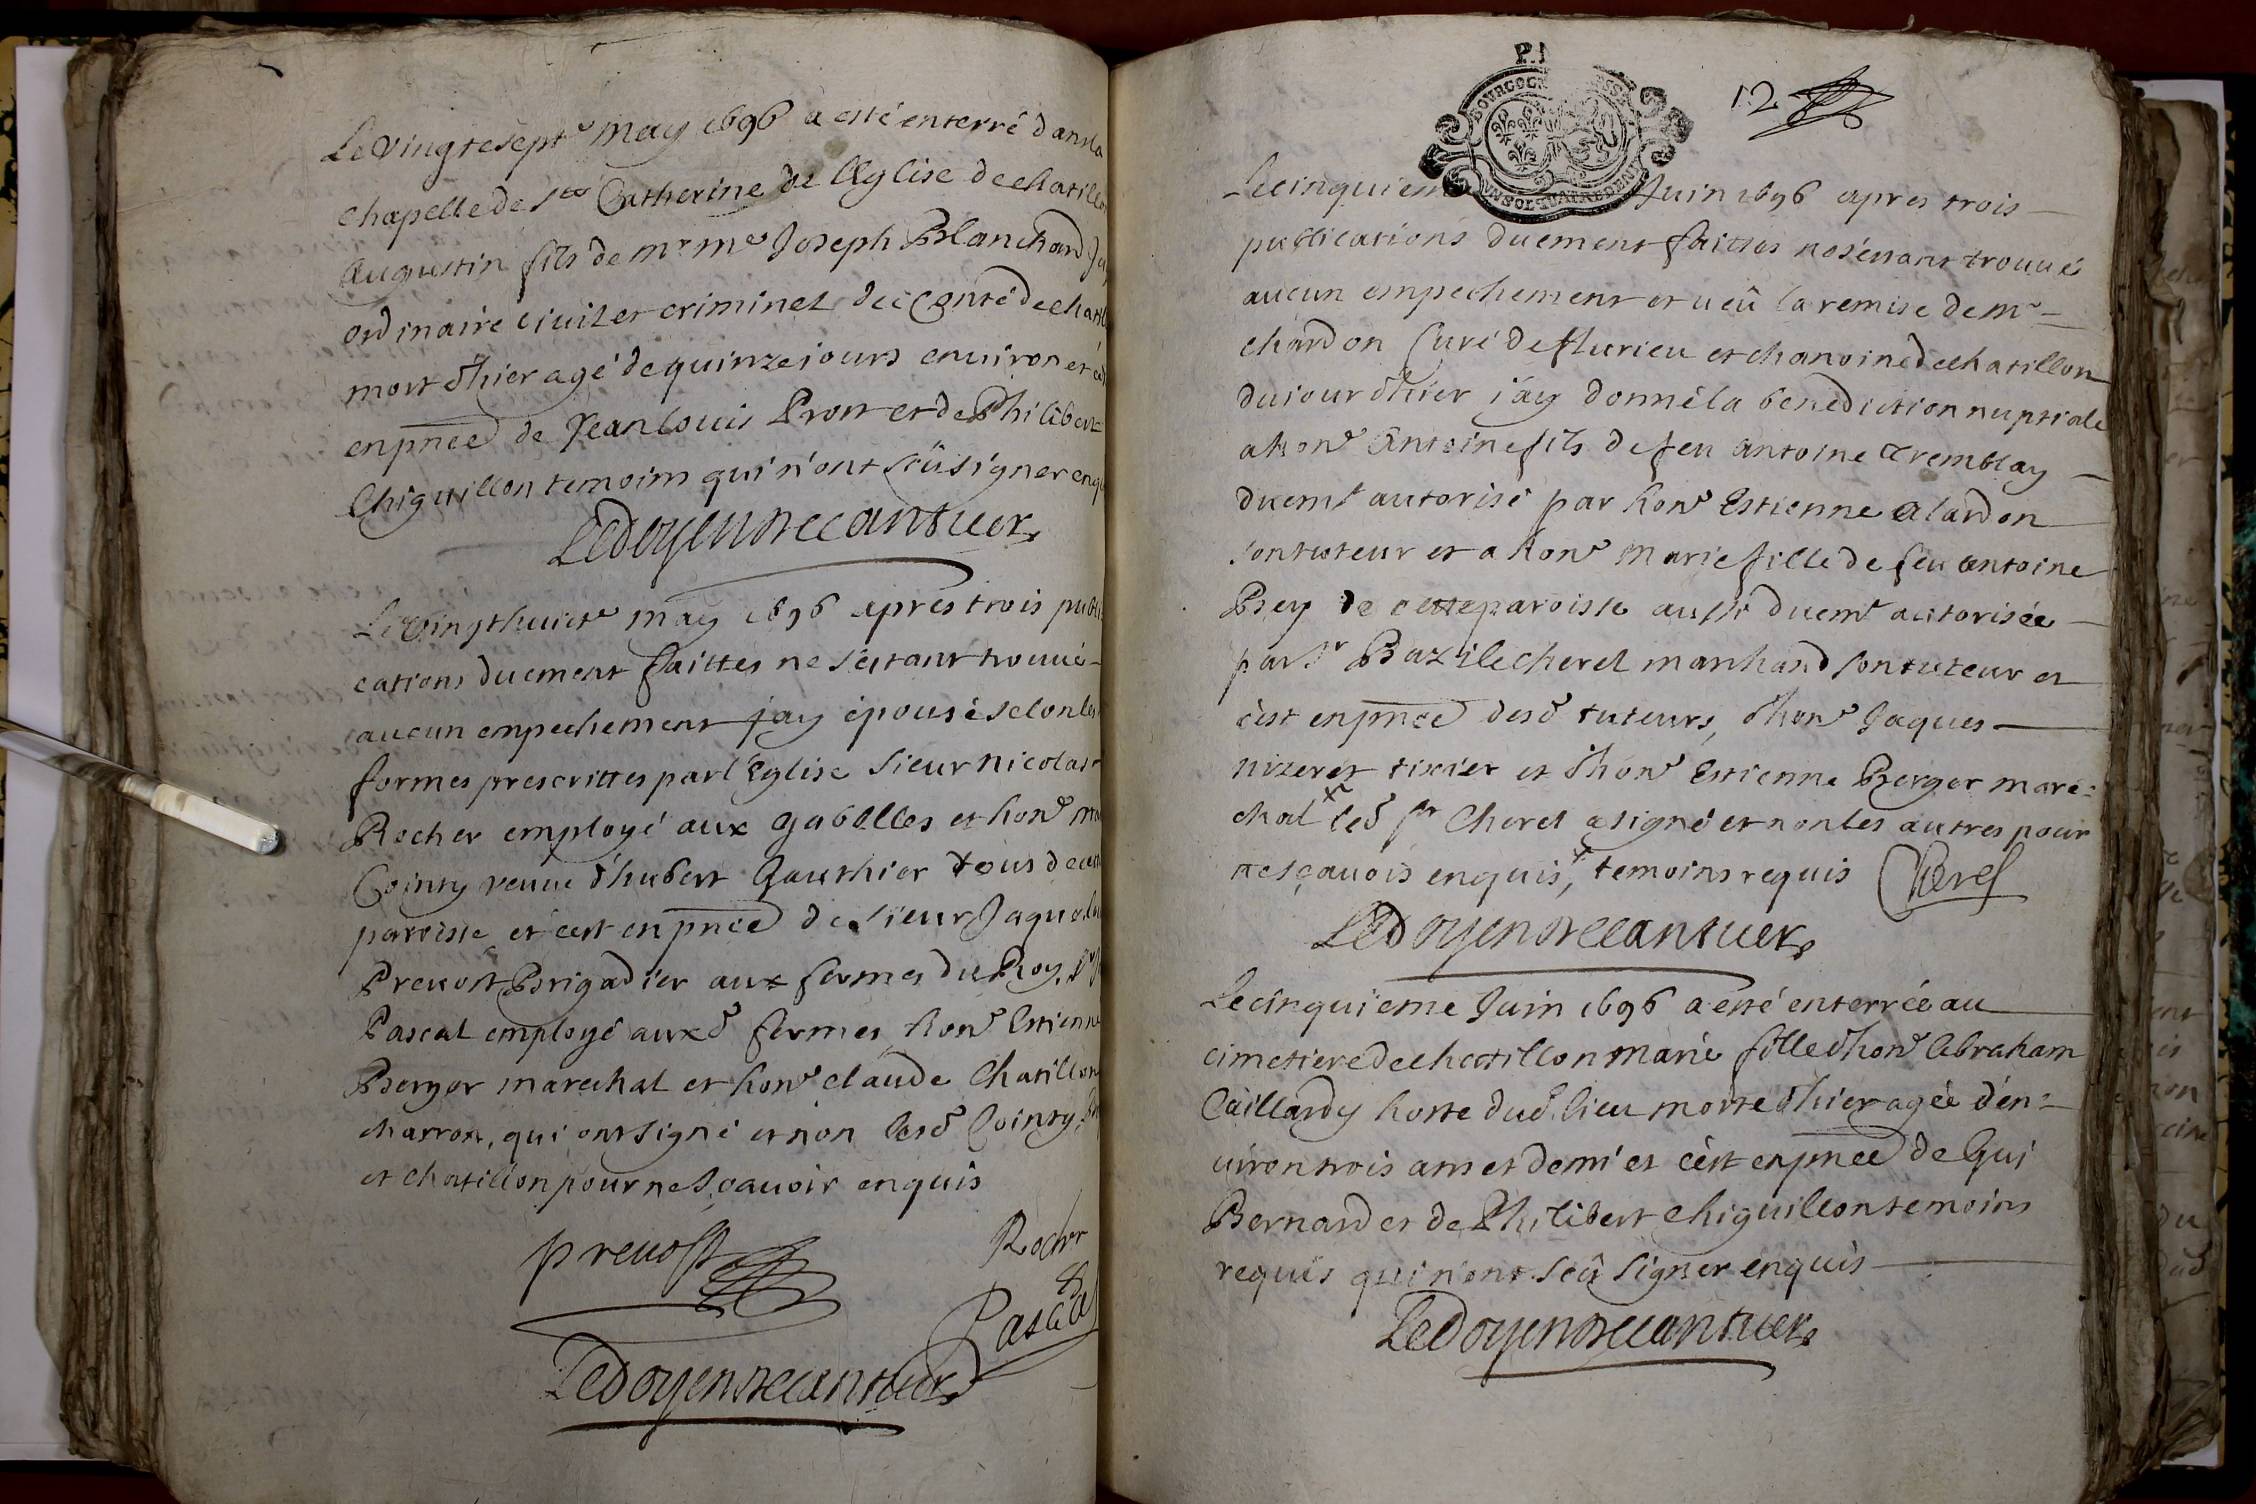 Le vingt esept.e may 1696 a esté enterré dans la
chapelle de s.te Catherine de l'Eglise de chatillon
Augustin fils de m.r m.e Joseph Blanchard
ordinaire civil et criminel de comté de chatillon
mort d'hier agé de quinze jours environ et
en pñce de Jean louis Prost et de Philibert
Chiguillon temoins qui n'ont sçû signer enquis
Le doyen
Le vingt huict.e may 1696 apres trois publi
cations duement faittes ne s'estant trouué
aucun empechement j'ay épousé selon les
formes prescrittes par l'Eglise sieur nicolas
Rocher employé aux gabelles et hon.e
Cointy veuve d'hubert Gauthier tous de cette
paroisse et c'est en pñce de sieur Jaque
Prevost Brigadier aux fermes du Roy, s.r
Pascal employé auxd. fermes hon.e Estienne
Berger marechal et hon.e claude Chatillon
charron, qui ont signé et non lesd. Cointy,
et chatillon pour ne sçavoir enquis
prevost Rocher
Pascal
Le doyen
12
BOURGOGNE
Le cinquiem Juin 1696 apres trois
publications duement faittes ne s'estant trouué
aucun empechement et veû la remise de m.r
chardon Curé de flurieu et chanoine de chatillon
du jour d'hier j'ay donné la benediction nuptiale
a hon.e Antoine fils de feu antoine Tremblay
duem.t autorisé par hon.e Estienne alardon
son tuteur et a hon.e marie fille de feu antoine
Bey de cette paroisse aussi duem.t autorisée
par s.r Bazile cherel marchand son tuteur et
c'est en pñce desd. tuteurs, d'hon.e Jaques
nizeret tixier et d'hon.e Estienne Berger mare=
chal led. s.r Cherel a signé et non les autres pour
ne sçavoir enquis, temoins requis Cherel
Le doyen
Le cinquieme Juin 1696 a esté enterrée au
cimetiere de chatillon marie fille d'hon.e Abraham
Caillardy hoste dud. lieu morte d'hier agée d'en=
viron trois ans et demi et c'est en pñce de Gui
Bernard et de Philibert chiguillon temoins
requis qui n'ont sçû signer enquis
Le doyen